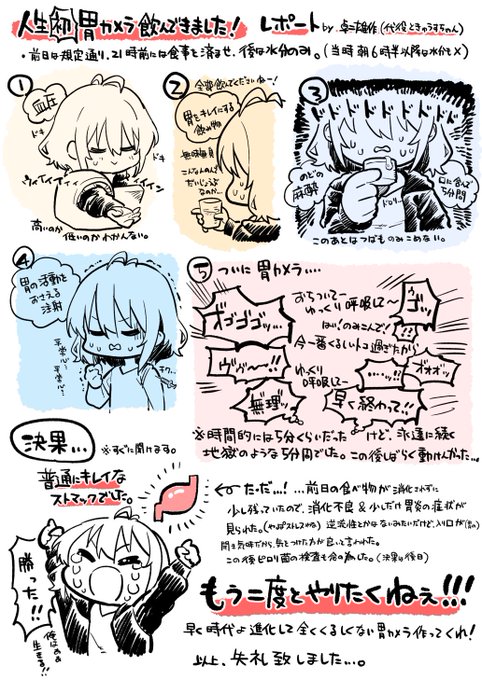 人生初胃カメラ飲んできました! レポート
・前日は規定通り、21時前には食事を済ませ、後は水分のみ。(当時朝6時半以降は水分も×)
①
血圧
ドキ
ドキ
ウィィィィィィイイン
高いのか低いのかわかんない。
②
全部飲んでくださいねー!
胃をキレイにする飲み物
無味無臭
③
ドドドドドドドドド
のどの麻酔
口に含んで5分間
このあとはつばものみこめない。
④
胃の活動をおさえる注射
平常心〜
平常心〜
⑤ ついに胃カメラ‥‥
オゴゴゴッ…
おちついてー
ゆっくり呼吸してー
ウゴッ
今一番くるしいトコ過ぎたから
ヴヴ〜!!
ゆっくり呼吸してー
…ッ!!
オオオッ
無理ッ
早く終わって!!
※時間的には5分くらいだったけど、永遠に続く
地獄のような5分間でした。この後しばらく動けんかった…
決果…
※すぐに聞けます。
普通にキレイな
ストマックでした。
←ただ…!…前日の食べ物が消化されずに
少し残っていたので、消化不良&少しだけ胃炎の症状が
見られた。(やっぱストレスかね)逆流性とかはないみたいだけど、入り口が(胃の)
開き気味だから、気をつけた方が良いって言われた。
この後ピロリ菌の検査も含め為した。(決果は後日)
勝った!!
俺はまだ生きる!!
もう二度とやりたくねぇ!!!
早く時代よ進化して全くくるしくない胃カメラ作ってくれ!
以上、失礼致しました…。